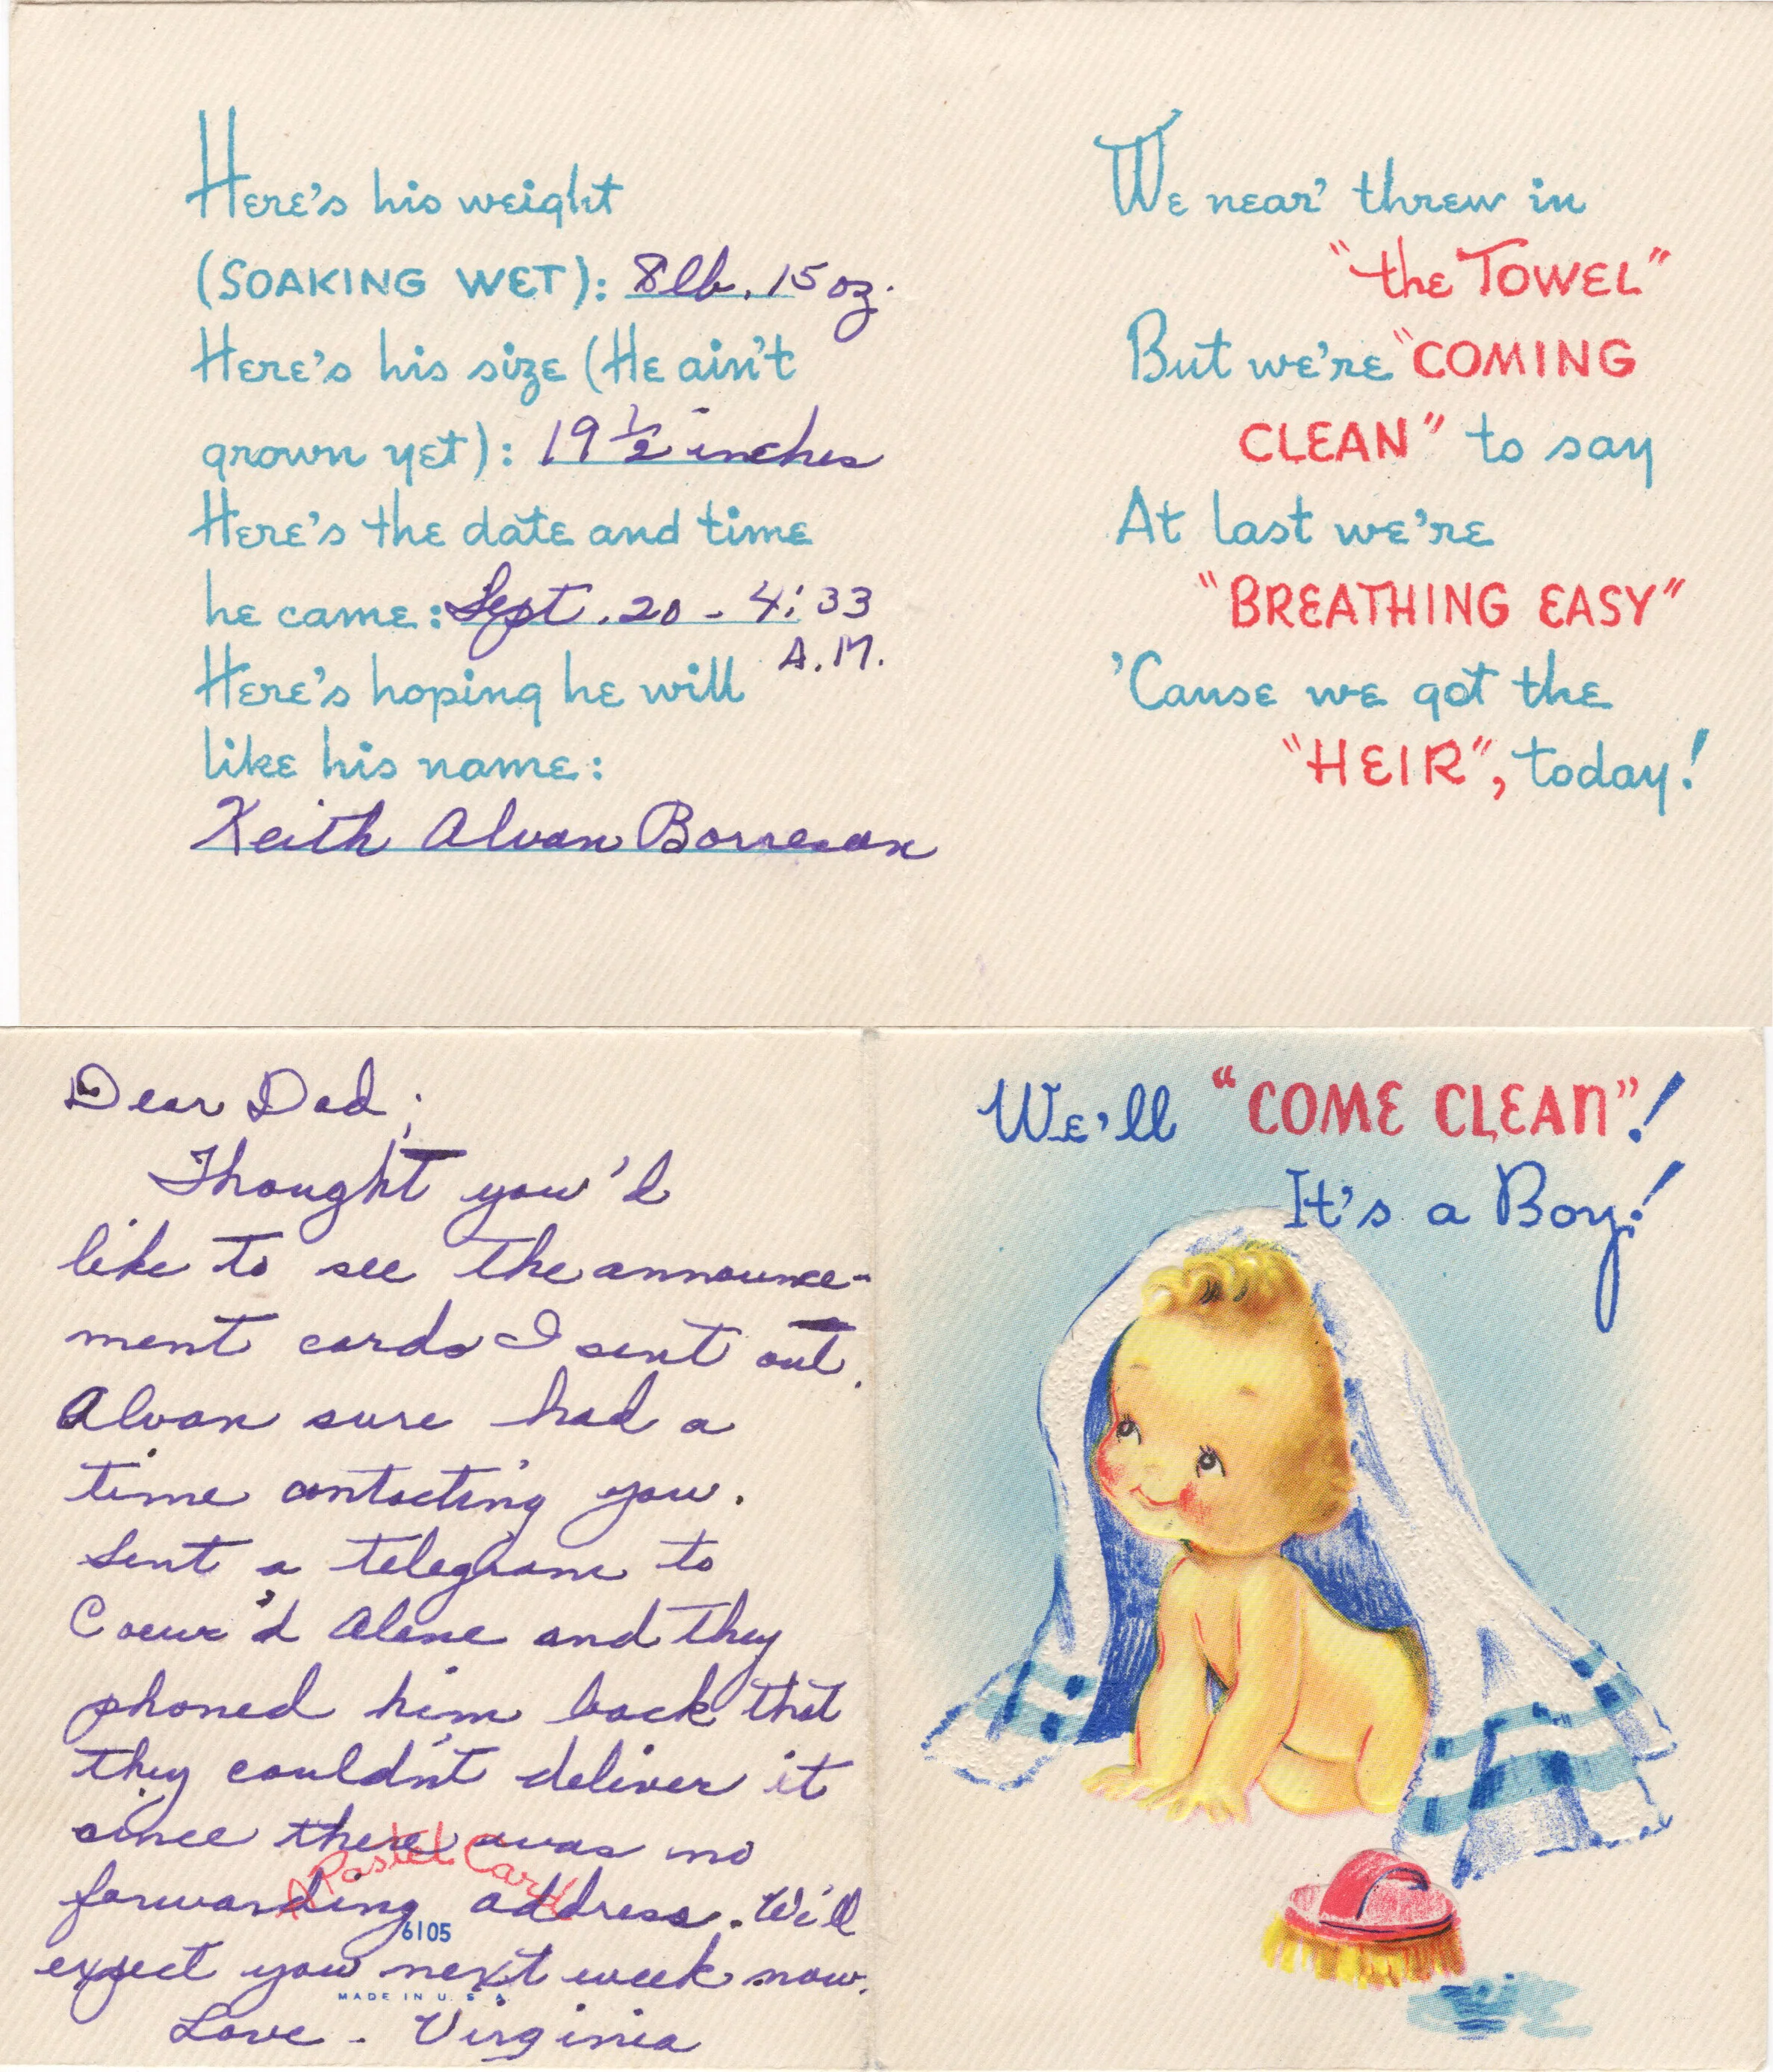 Here's his weight
(SOAKING WET): 8lb. 15 oz.
Here's his size (He ain't
grown yet): 19 1/2 inches
Here's the date and time
he came: Sept. 20 - 4:33
A.M.
Here's hoping he will
like his name:
Keith Alvan Borresen
We near' threw in
"the TOWEL"
But we're "COMING
CLEAN" to say
At last we're
"BREATHING EASY"
'Cause we got the
"HEIR", today!
Dear Dad;
Thought you'd
like to see the announce-
ment cards I sent out.
Alvan sure had a
time contacting you.
Sent a telegram to
Coeur'd Alene and they
phoned him back that
they couldn't deliver it
since there was no
forwarding address. We'll
expect you next week now.
Love - Virginia
A Pastel Card
6105
MADE IN U.S.A.
We'll "COME CLEAN"!
It's a Boy!